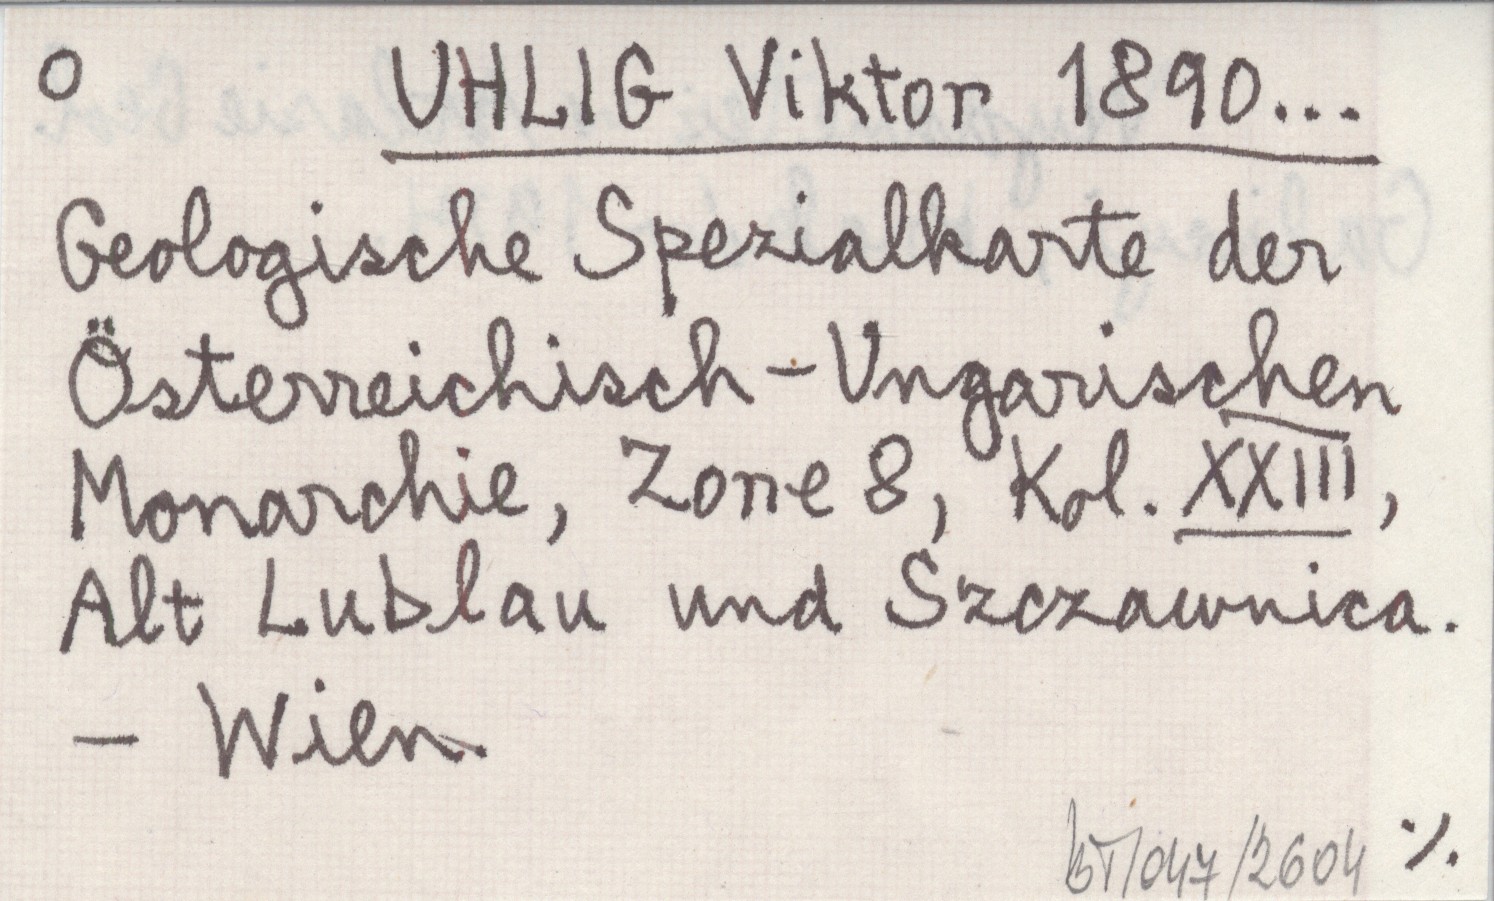 O UHLIG Viktor 1890...
Geologische Spezialkarte der
Österreichisch-Ungarischen
Monarchie, Zone 8, Kol. XXIII,
Alt Lublau und Szczawnica.
- Wien.
/047/2604 ./.